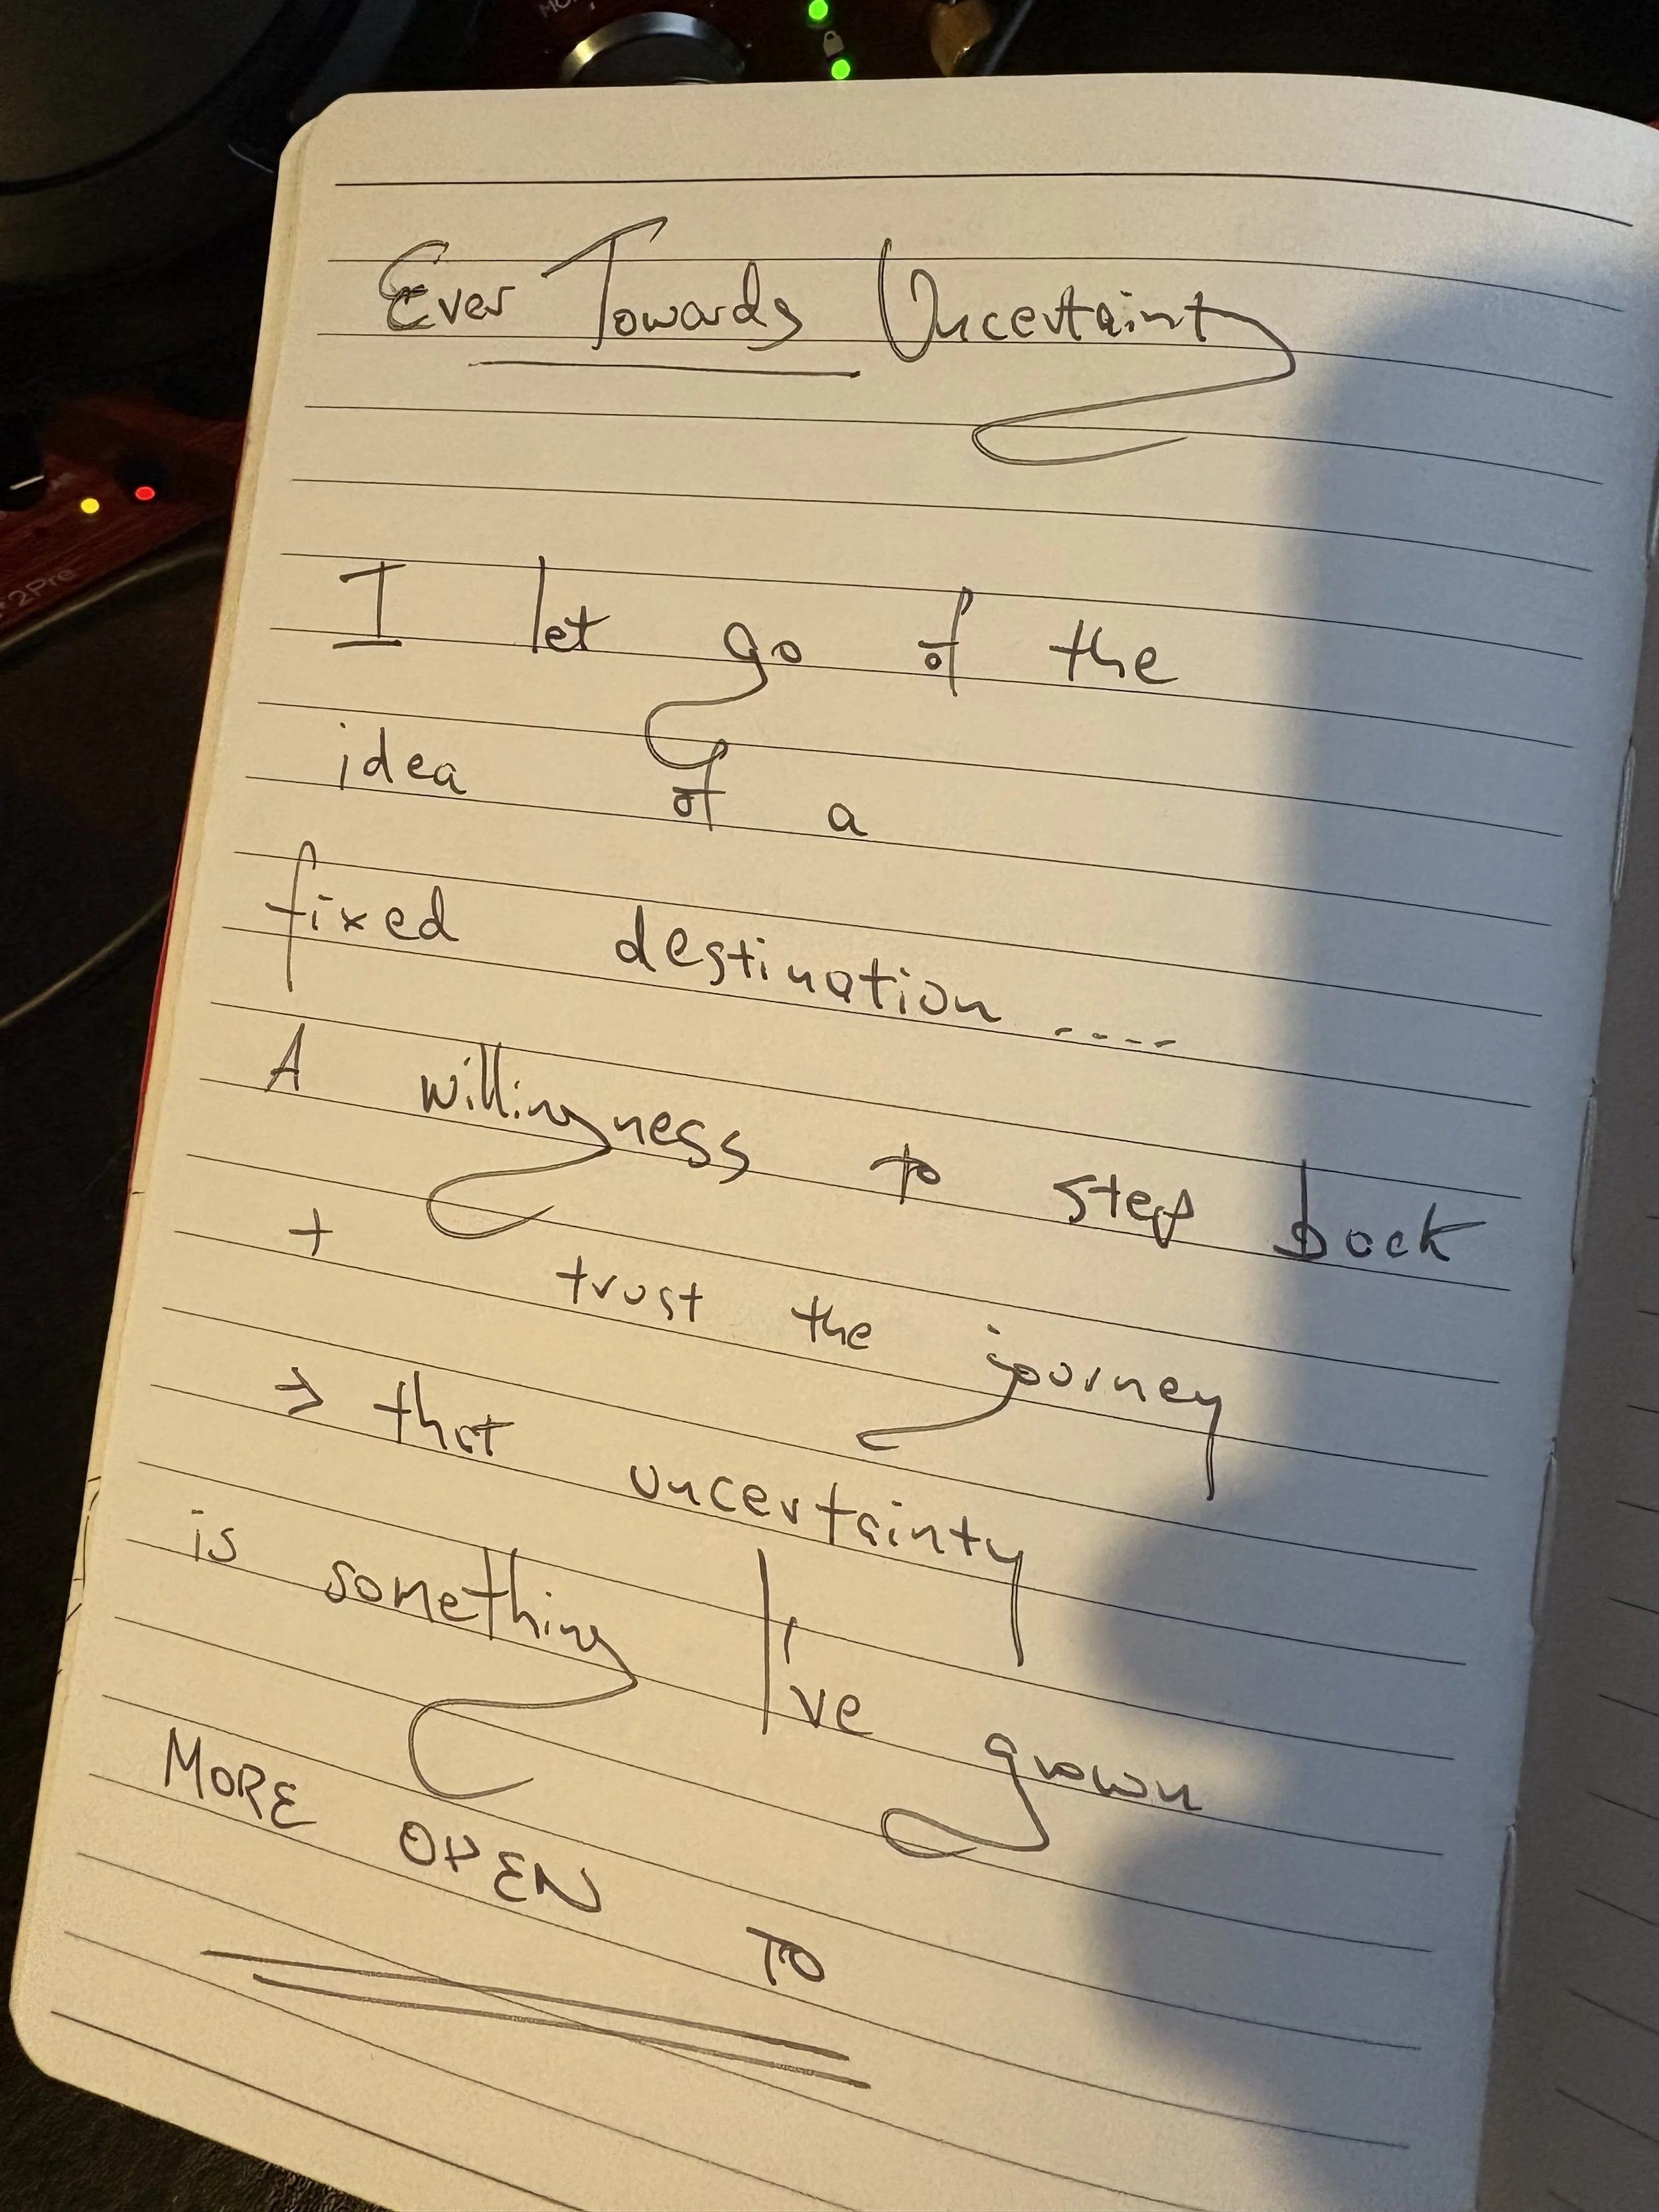 Ever Towards Uncertainty
I let go of the
idea of a
fixed destination ....
A willingness to step back
+ trust the journey
→ that uncertainty
is something I've grown
MORE OPEN TO
2Pre